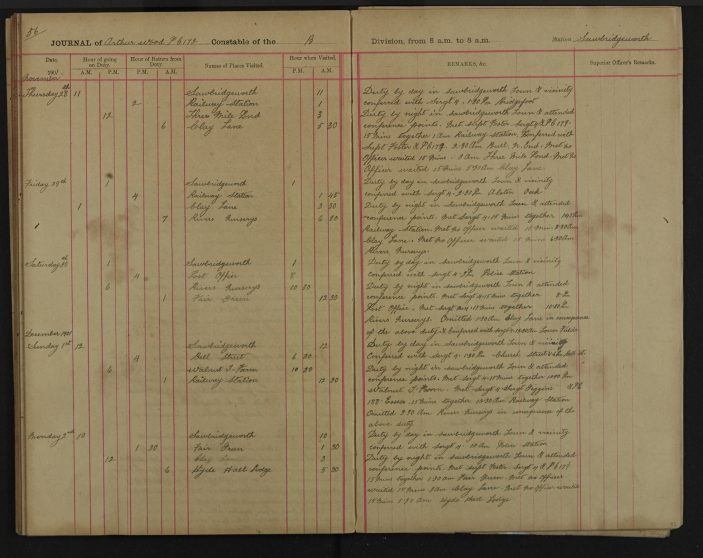 56
JOURNAL of Arthur Wood P C 179 Constable of the B Division, from 8 a.m. to 8 a.m. Station Sawbridgeworth
Date. Hour of going on Duty. Hour of Return from Duty. Names of Places Visited. Hour when Visited. REMARKS, &c. Superior Officer's Remarks.
190 A.M. P.M. A.M. P.M. P.M. A.M.
November
Thursday 28th 11 Sawbridgeworth 11 Duty by day in Sawbridgeworth Town & vicinity
2 Railway Station 1 conferred with Sergt 4. 1.30 Pm
12 Three Mile Pond 3 Duty by night in Sawbridgeworth Town & attended
6 Clay Lane 5 30 conference points. Met Supt Foster Sergt 4 & P C 179.
15 Mins together 1 am Railway Station. Conferred with
Supt Foster & P C 179. 2.30 Am Bull. Met no
Officer waited 15 Mins. 3 Am Three Mile Pond. Met no
Officer waited 15 Mins 5.30 Am Clay Lane
Friday 29th 1 Sawbridgeworth 1 Duty by day in Sawbridgeworth Town & vicinity
4 Railway Station 1 45 conferred with Sergt 4. 2.30 Pm Oak
1 Clay Lane 3 30 Duty by night in Sawbridgeworth Town & attended
7 Rivers Nurserys 6 30 conference points. Met Sergt 4. 15 Mins together
Railway Station. Met no Officer waited 15 Mins 3.30 Am
Clay Lane. Met no Officer waited 15 Mins 6.30 Am
Rivers Nurserys
Saturday 30th 1 Sawbridgeworth 1 Duty by day in Sawbridgeworth Town & vicinity
4 Post Office 8 conferred with Sergt 4. Police Station
6 Rivers Nurserys 10 30 Duty by night in Sawbridgeworth Town & attended
1 Fair Green 12 30 conference points. Met Sergt 4. 15 Mins together 8 Pm
Post Office. Met Sergt 4. 15 Mins together 10.30 Pm
Rivers Nurserys. Omitted Clay Lane in consequence
December 1901 of the above duty & Conferred with Sergt 4. Town Fields
Sunday 1st 12 Sawbridgeworth 12 Duty by day in Sawbridgeworth Town & vicinity
4 Bell Street 6 30 Conferred with Sergt 4. 1.30 Pm Church Street
6 Walnut T. Farm 10 30 Duty by night in Sawbridgeworth Town & attended
1 Railway Station 12 30 conference points. Met Sergt 4. 15 Mins together
Walnut T. Farm. Met Sergt 4 & Sergt
Essex. 15 Mins together 12.30 Am Railway Station
Omitted 3.30 Am Rivers Nurserys in consequence of the
above duty
Monday 2nd 10 Sawbridgeworth 10 Duty by day in Sawbridgeworth Town & vicinity
1 30 Fair Green 1 30 conferred with Sergt 4. 10 Am Police Station
12 Clay Lane 3 Duty by night in Sawbridgeworth Town & attended
6 Hyde Hall Lodge 5 30 conference points. Met Supt Foster Sergt 4 & P C 179
15 Mins together 1.30 am Fair Green. Met no Officer
waited 15 Mins 3 Am Clay Lane. Met no Officer waited
15 Mins 5.30 Am Hyde Hall Lodge